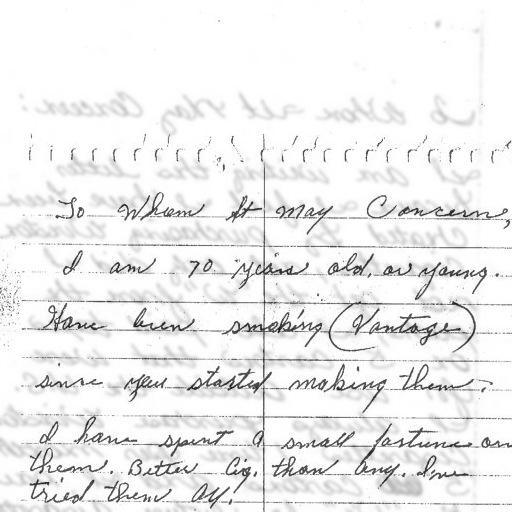 To Whom It May Concern,
I am 70 years old, or young.
Have been smoking (Vantage)
since you started making them.
I have spent a small fortune on
them. Better Cig. than any. I've
tried them all!